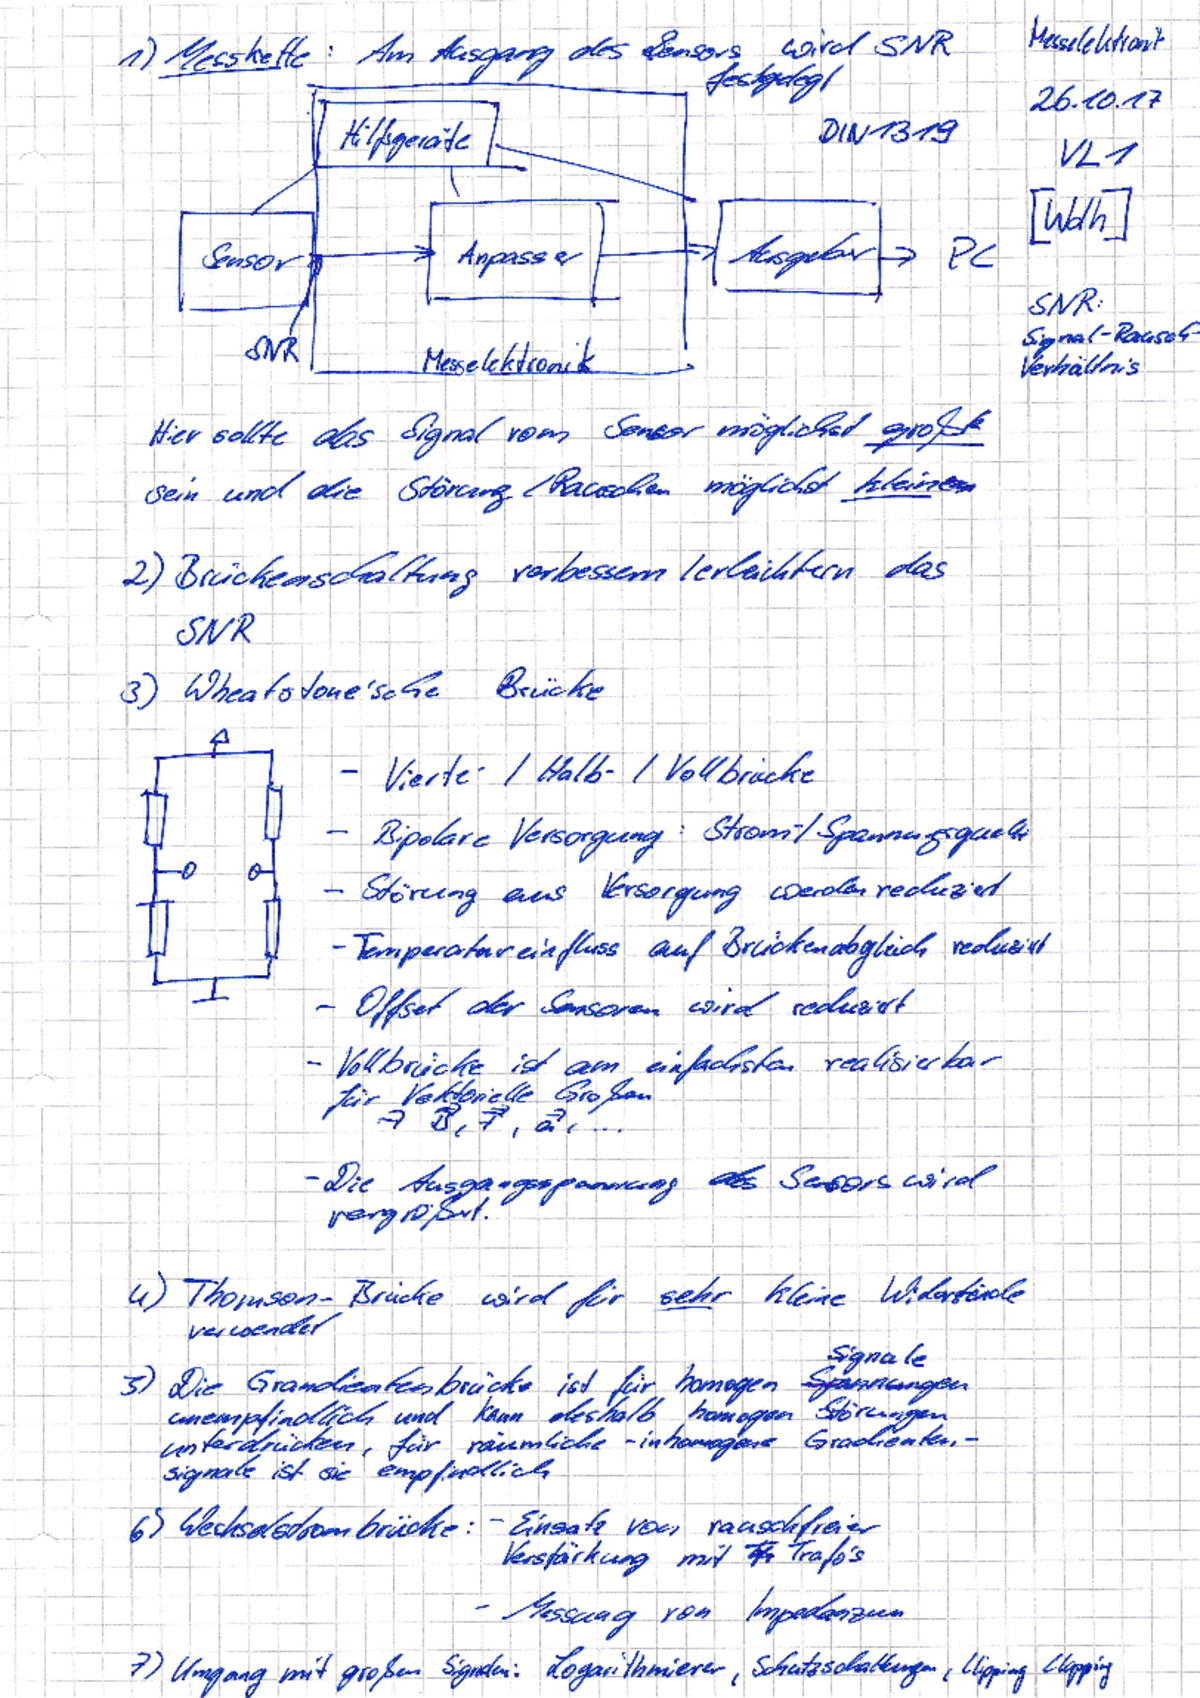 1) Messkette: Am Ausgang des Sensors wird SNR
festgelegt
Messelektronik
26.10.17
VL1
[Wdh]
DIN 1319
Hilfsgeräte
Sensor
Anpasser
Ausgeber
PC
SNR
Messelektronik
SNR:
Signal-Rausch-
Verhältnis
Hier sollte das Signal vom Sensor möglichst groß
sein und die Störung/Rauschen möglichst klein
2) Brückenschaltung verbessern/erleichtern das
SNR
3) Wheatstone'sche Brücke
- Viertel- / Halb- / Vollbrücke
- Bipolare Versorgung: Strom-/Spannungsquelle
- Störung aus Versorgung werden reduziert
- Temperatureinfluss auf Brückenabgleich reduziert
- Offset der Sensoren wird reduziert
- Vollbrücke ist am einfachsten realisierbar
für Vektorielle Größen
→ B⃗, F⃗, a⃗, ...
- Die Ausgangsspannung des Sensors wird
vergrößert.
4) Thomson-Brücke wird für sehr kleine Widerstände
verwendet
Signale
5) Die Grandientenbrücke ist für homogen Spannungen
unempfindlich und kann deshalb homogen Störungen
unterdrücken, für räumliche -inhomogene Gradienten-
signale ist sie empfindlich
6) Wechselstrombrücke: - Einsatz von rauschfreier
Verstärkung mit Trafo's
- Messung von Impedanzen
7) Umgang mit großen Signalen: Logarithmierer, Schutzschaltungen, Clipping